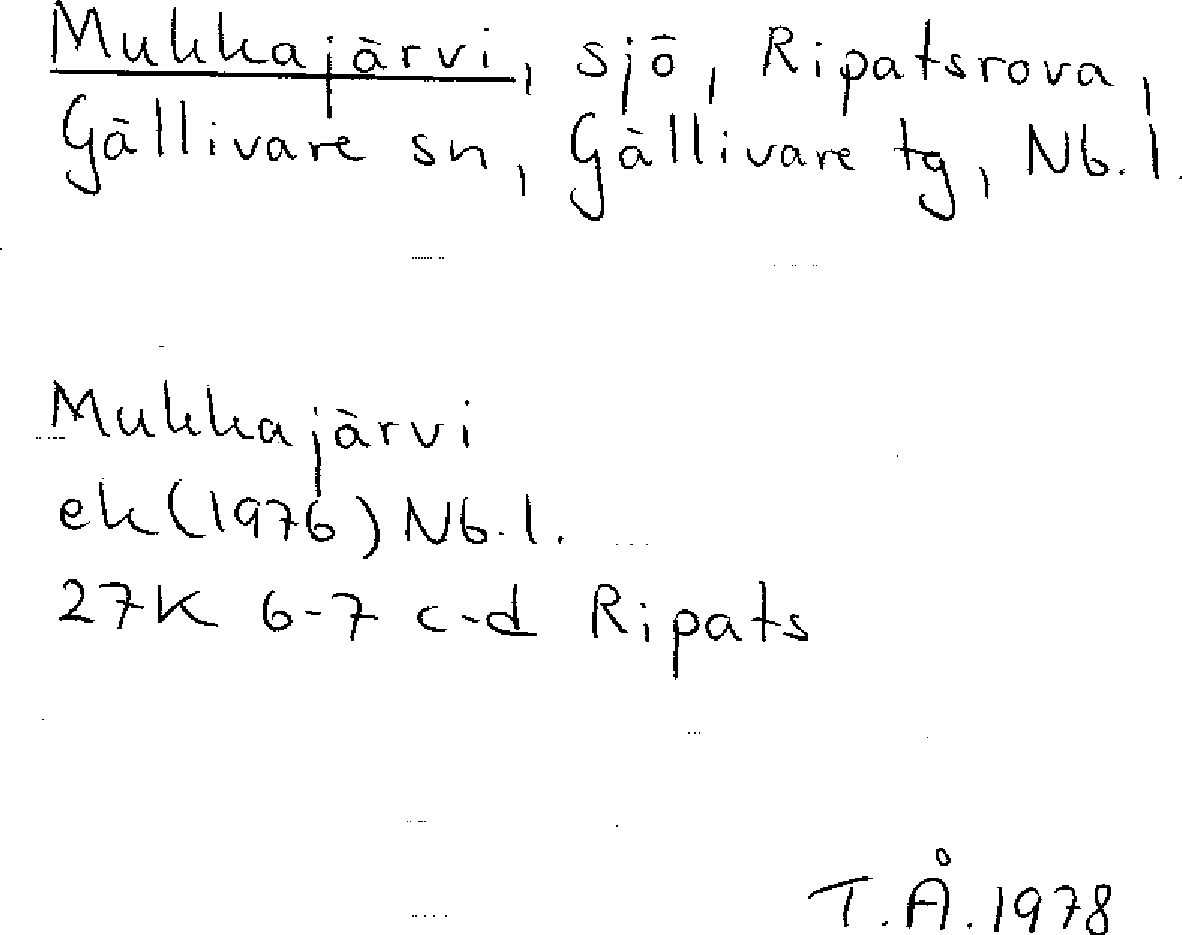 Mukkajärvi, sjö, Ripatsrova,
Gällivare sn, Gällivare tg, Nb. l.
Mukkajärvi
ek (1976) Nb. l.
27K 6-7 c-d Ripats
T.Å. 1978